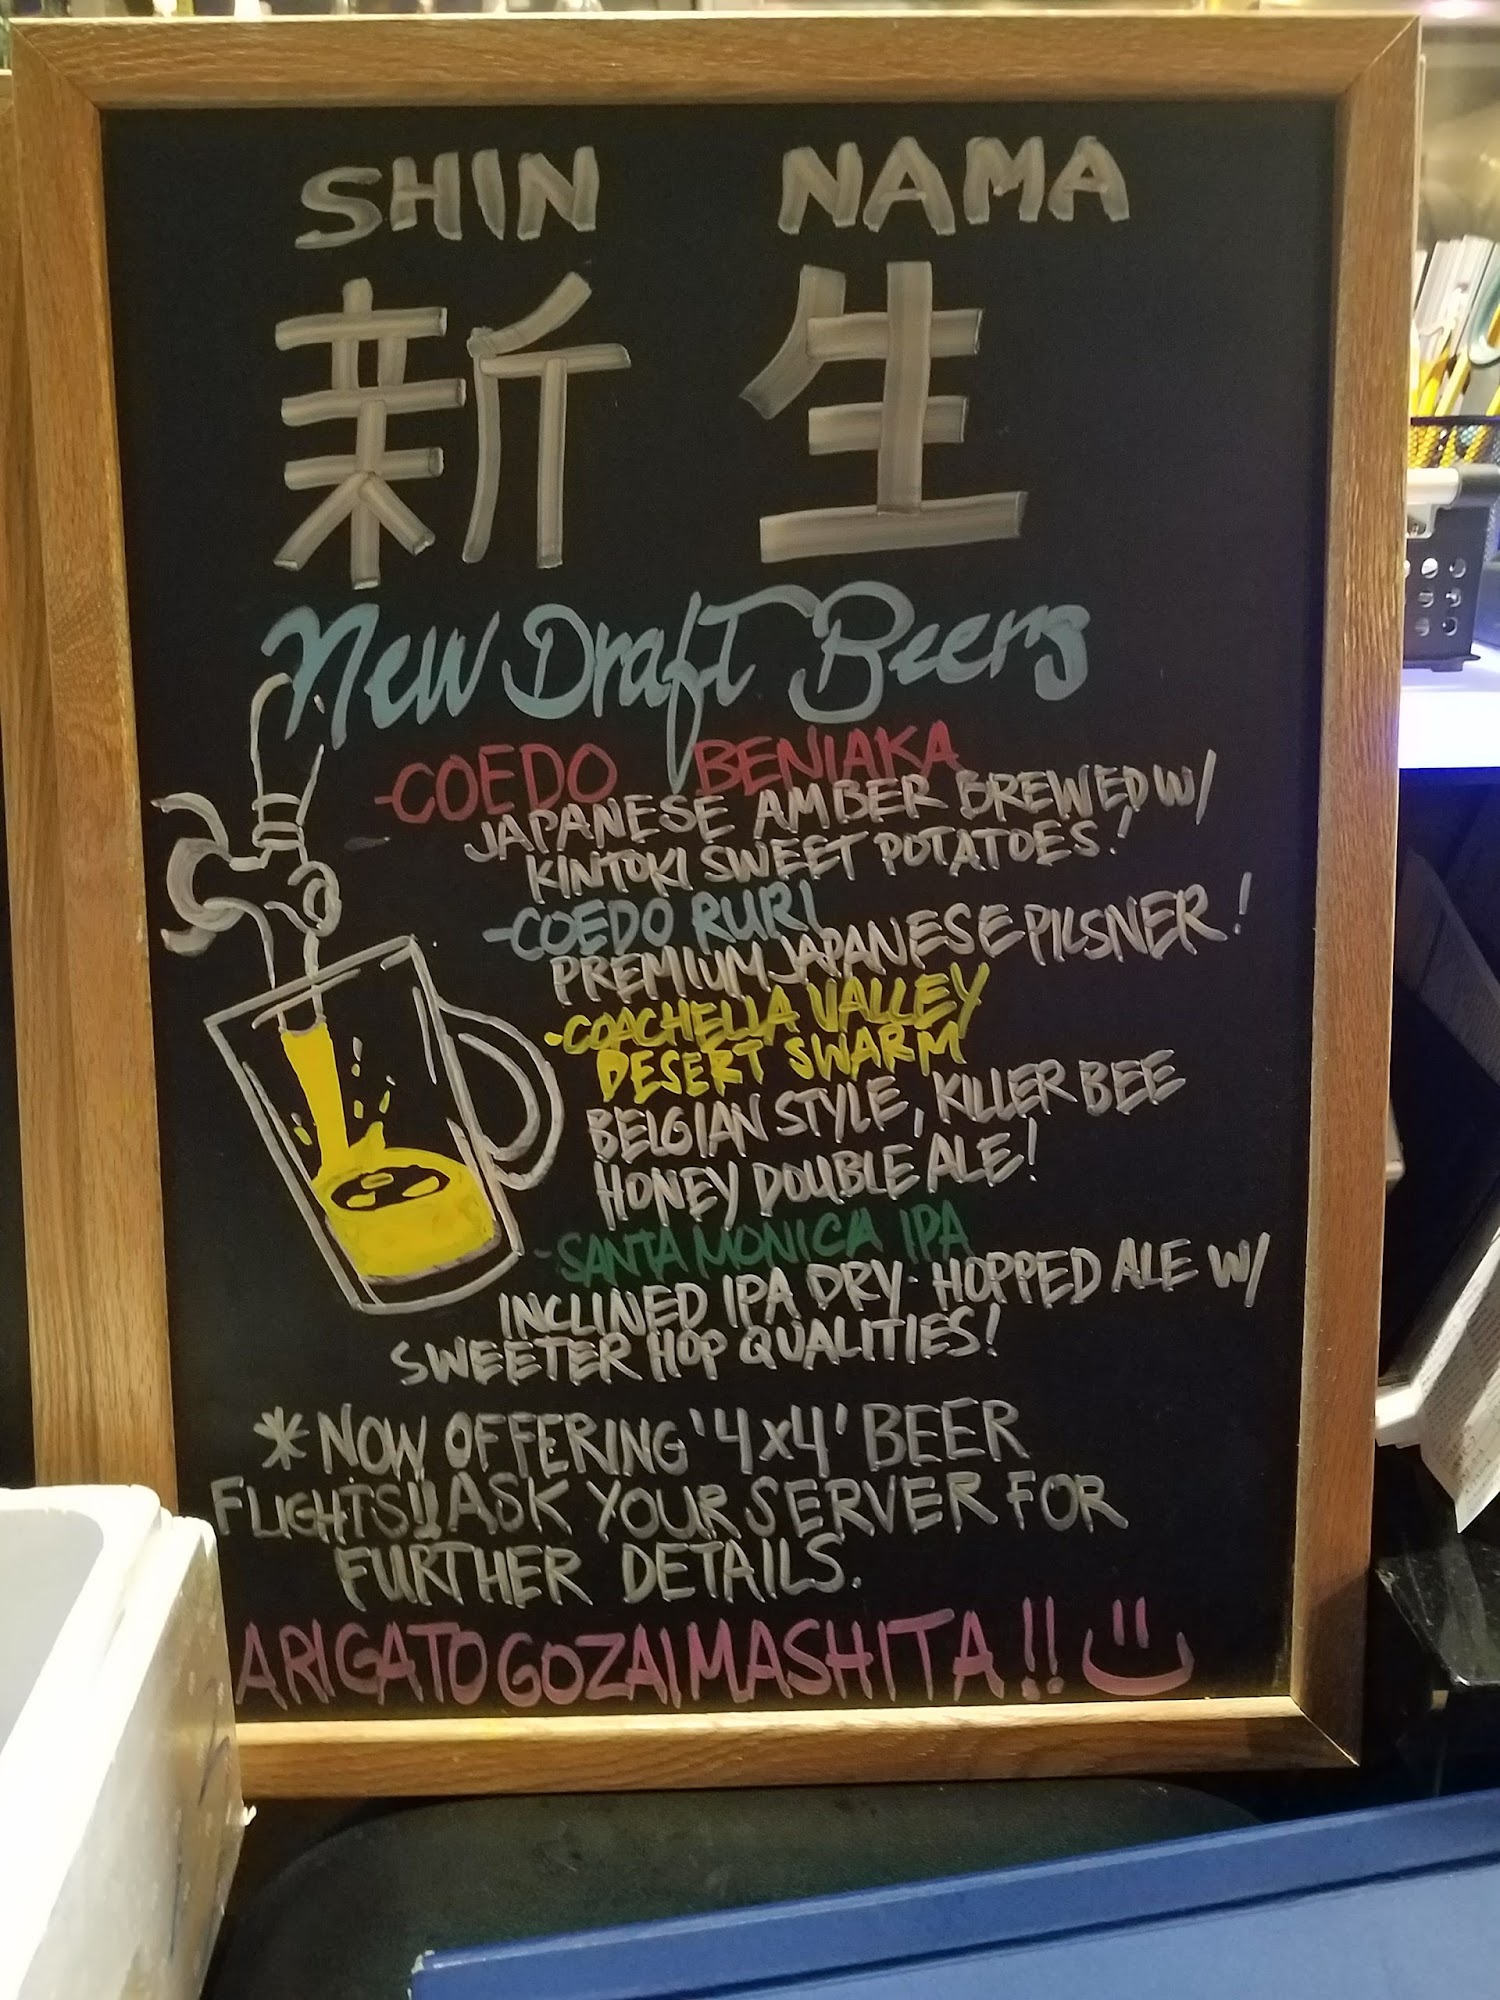 SHIN NAMA
新 生
New Draft Beers
-COEDO BENIAKA
JAPANESE AMBER BREWED W/
KINTOKI SWEET POTATOES!
-COEDO RURI
PREMIUM JAPANESE PILSNER!
-COACHELLA VALLEY
DESERT SWARM
BELGIAN STYLE, KILLER BEE
HONEY DOUBLE ALE!
-SANTA MONICA IPA
INCLINED IPA DRY-HOPPED ALE W/
SWEETER HOP QUALITIES!
*NOW OFFERING '4x4' BEER
FLIGHTS!! ASK YOUR SERVER FOR
FURTHER DETAILS.
ARIGATO GOZAIMASHITA!!